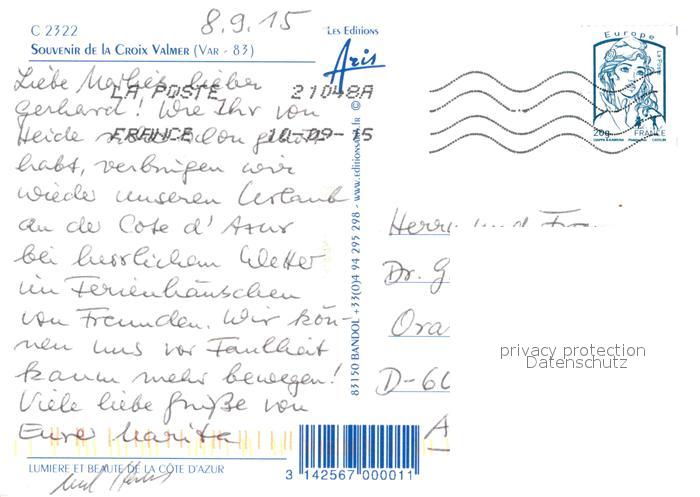 8.9.15
C 2322
SOUVENIR DE LA CROIX VALMER (VAR - 83)
Les Editions
Aris
Europe
La Poste
20g
FRANCE
LA POSTE 21048A
FRANCE 10-09-15
Liebe lieber
Gerhard! Wie Ihr von
Heide schon gehört
habt, verbringen wir
wieder unseren Urlaub
an der Cote d'Azur
bei herrlichem Wetter
im Ferienhäuschen
von Freunden. Wir kön-
nen uns vor Faulheit
kaum mehr bewegen!
Viele liebe Grüße von
Eure Marita
83150 BANDOL +33(0)4 94 295 298 - www.editionsaris.fr ©
Herrn und
Dr. G
Ora
D-60
A
privacy protection
Datenschutz
LUMIERE ET BEAUTÉ DE LA CÔTE D'AZUR
und
3 142567 000011